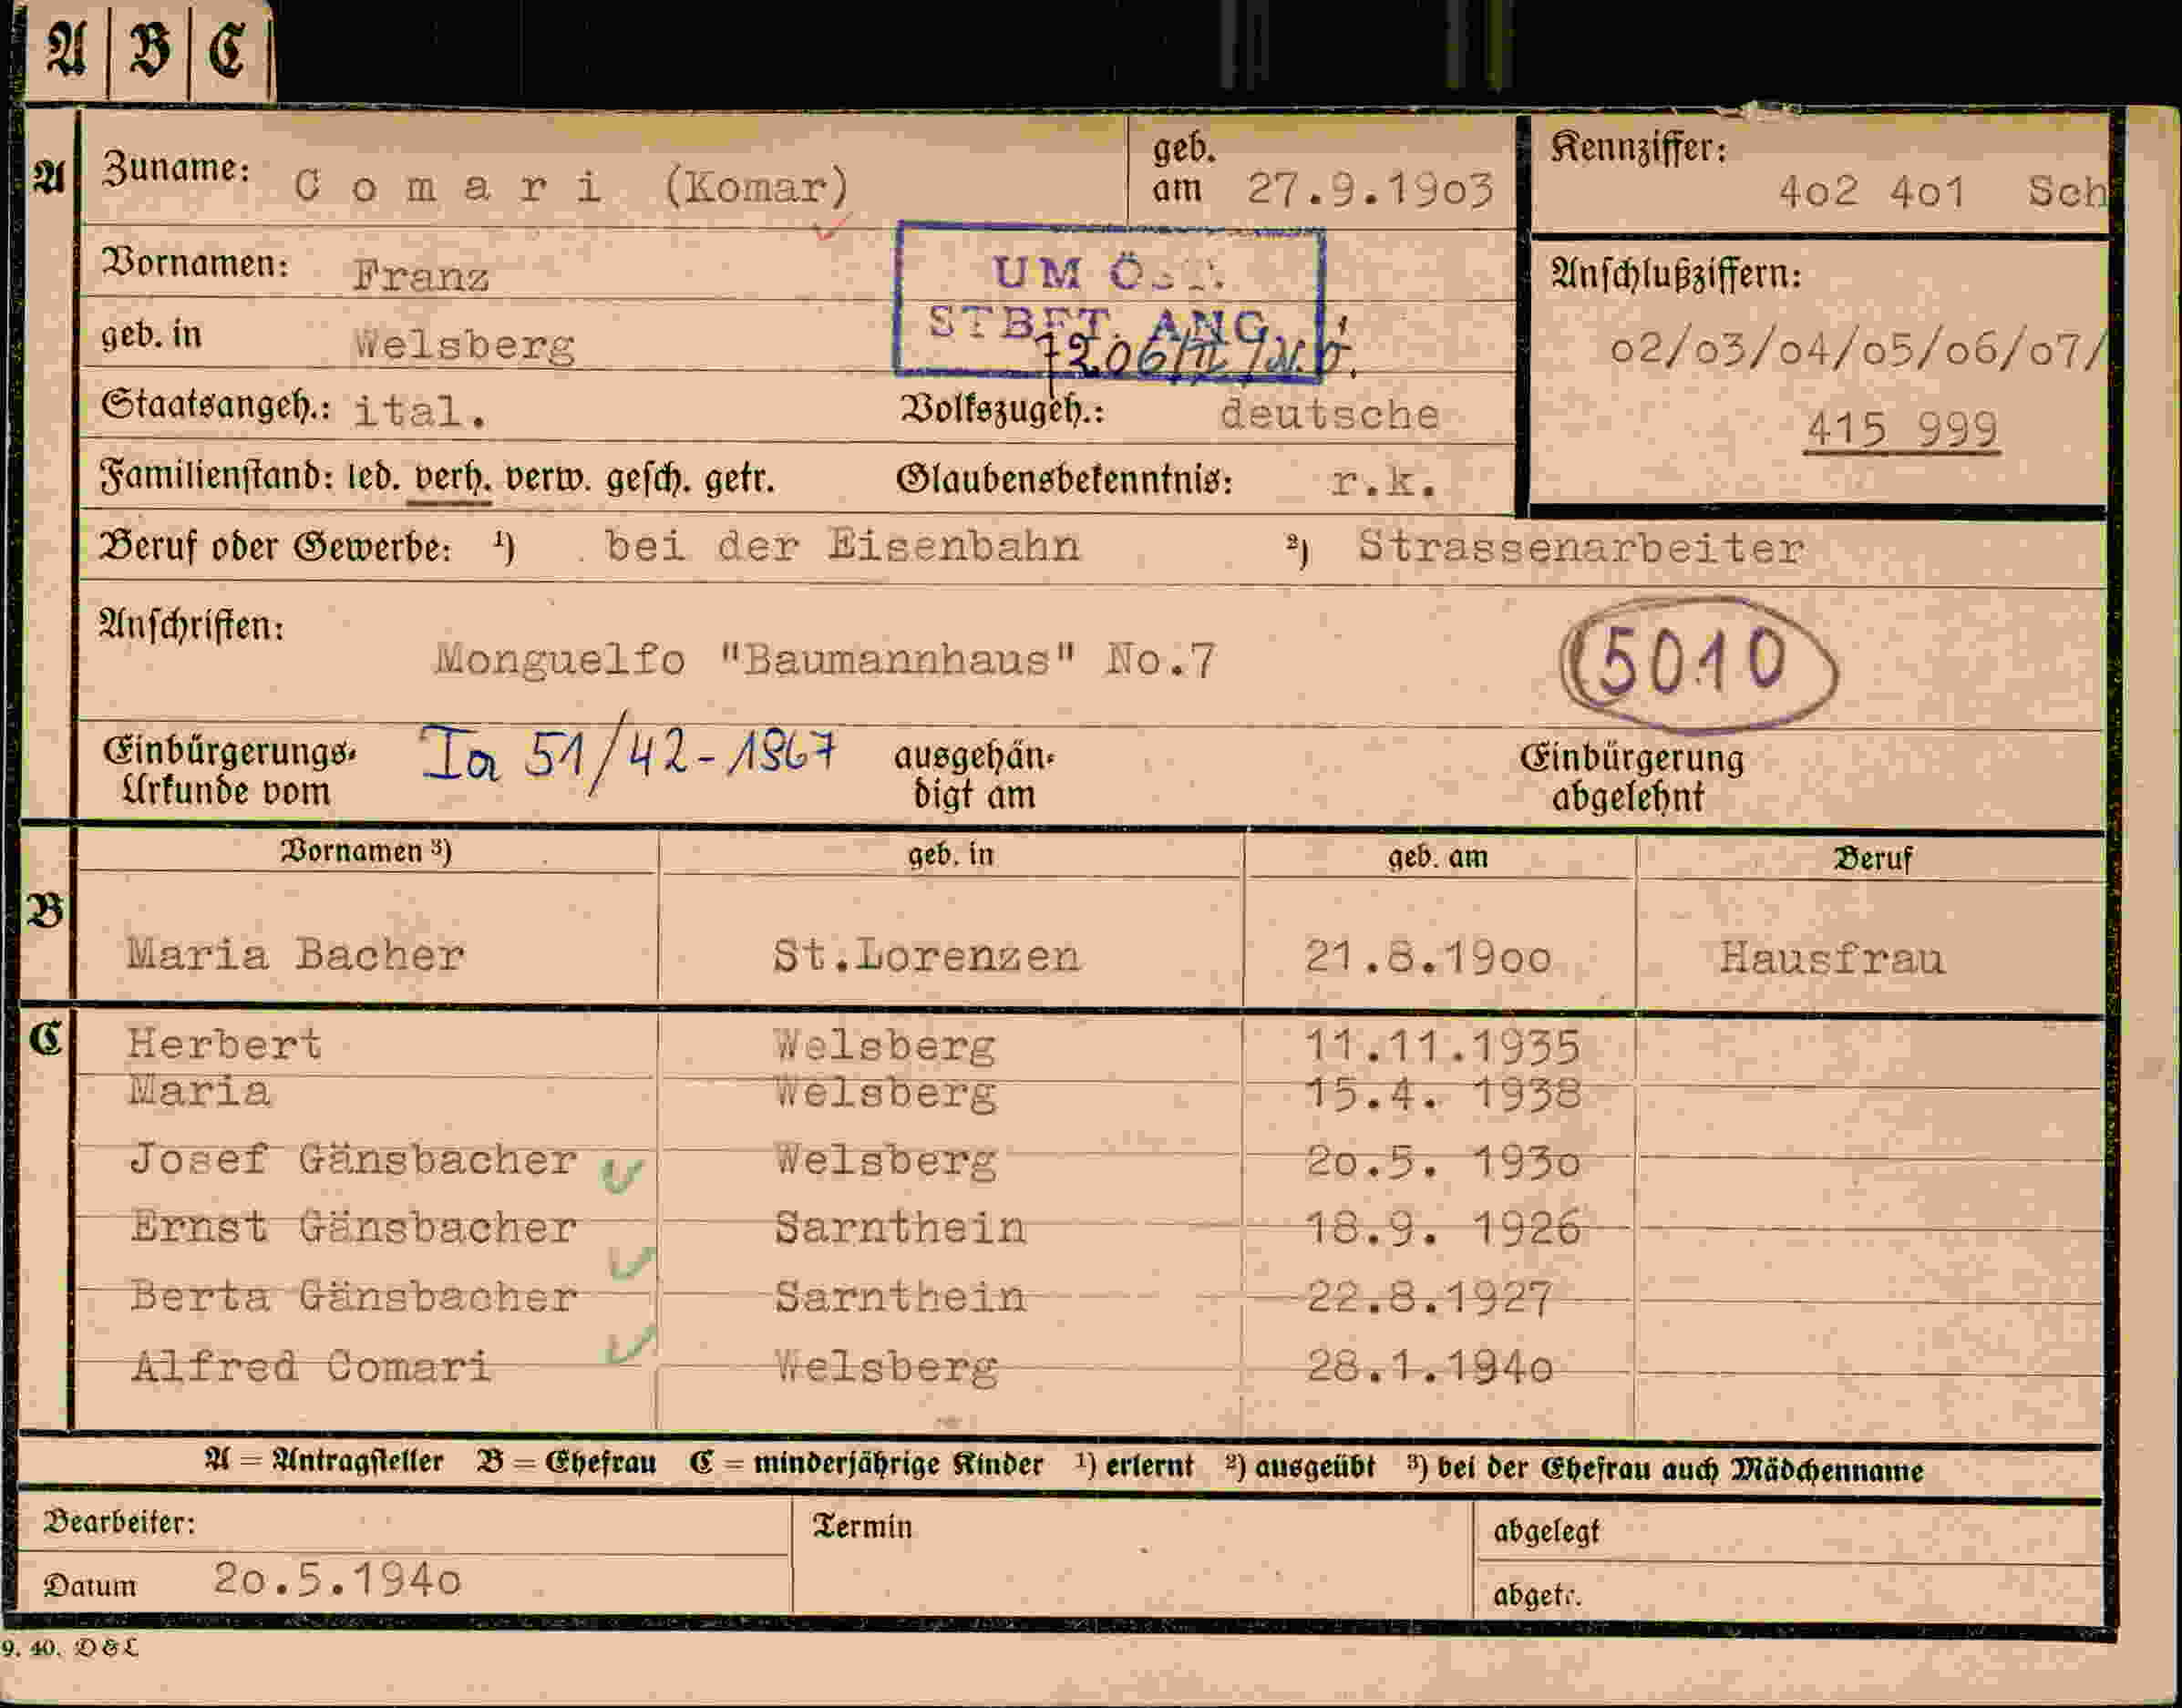 A B C
A Zuname: C o m a r i (Komar) geb. am 27.9.19o3 Kennziffer: 4o2 4o1 Sch
Vornamen: Franz
UM ÖST.
STBFT. ANG.
Anschlußziffern:
geb. in Welsberg
o2/o3/o4/o5/o6/o7/
Staatsangeh.: ital. Volkszugeh.: deutsche
415 999
Familienstand: led. verh. verw. gesch. getr. Glaubensbekenntnis: r.k.
Beruf oder Gewerbe: ¹) bei der Eisenbahn ²) Strassenarbeiter
Anschriften: Monguelfo "Baumannhaus" No.7
5010
Einbürgerungs-Urkunde vom Ia 51/42-1867 ausgehändigt am Einbürgerung abgelehnt
Vornamen ³) geb. in geb. am Beruf
B Maria Bacher St.Lorenzen 21.8.19oo Hausfrau
C Herbert Welsberg 11.11.1935
Maria Welsberg 15.4. 1938
Josef Gänsbacher Welsberg 2o.5. 193o
Ernst Gänsbacher Sarnthein 18.9. 1926
Berta Gänsbacher Sarnthein 22.8.1927
Alfred Comari Welsberg 28.1.194o
A = Antragsteller B = Ehefrau C = minderjährige Kinder ¹) erlernt ²) ausgeübt ³) bei der Ehefrau auch Mädchenname
Bearbeiter: Termin abgelegt
Datum 2o.5.194o abgetr.
9. 40. D & L